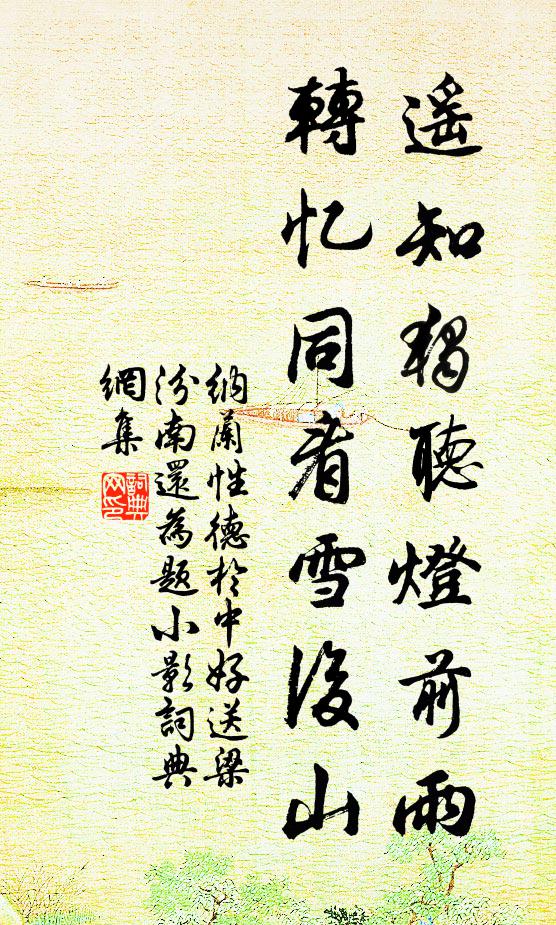 遥知獨聽燈前雨
轉忆同看雪後山
納蘭性德於中好送梁
汾南還為題小影詞典
網集
詞典
网印